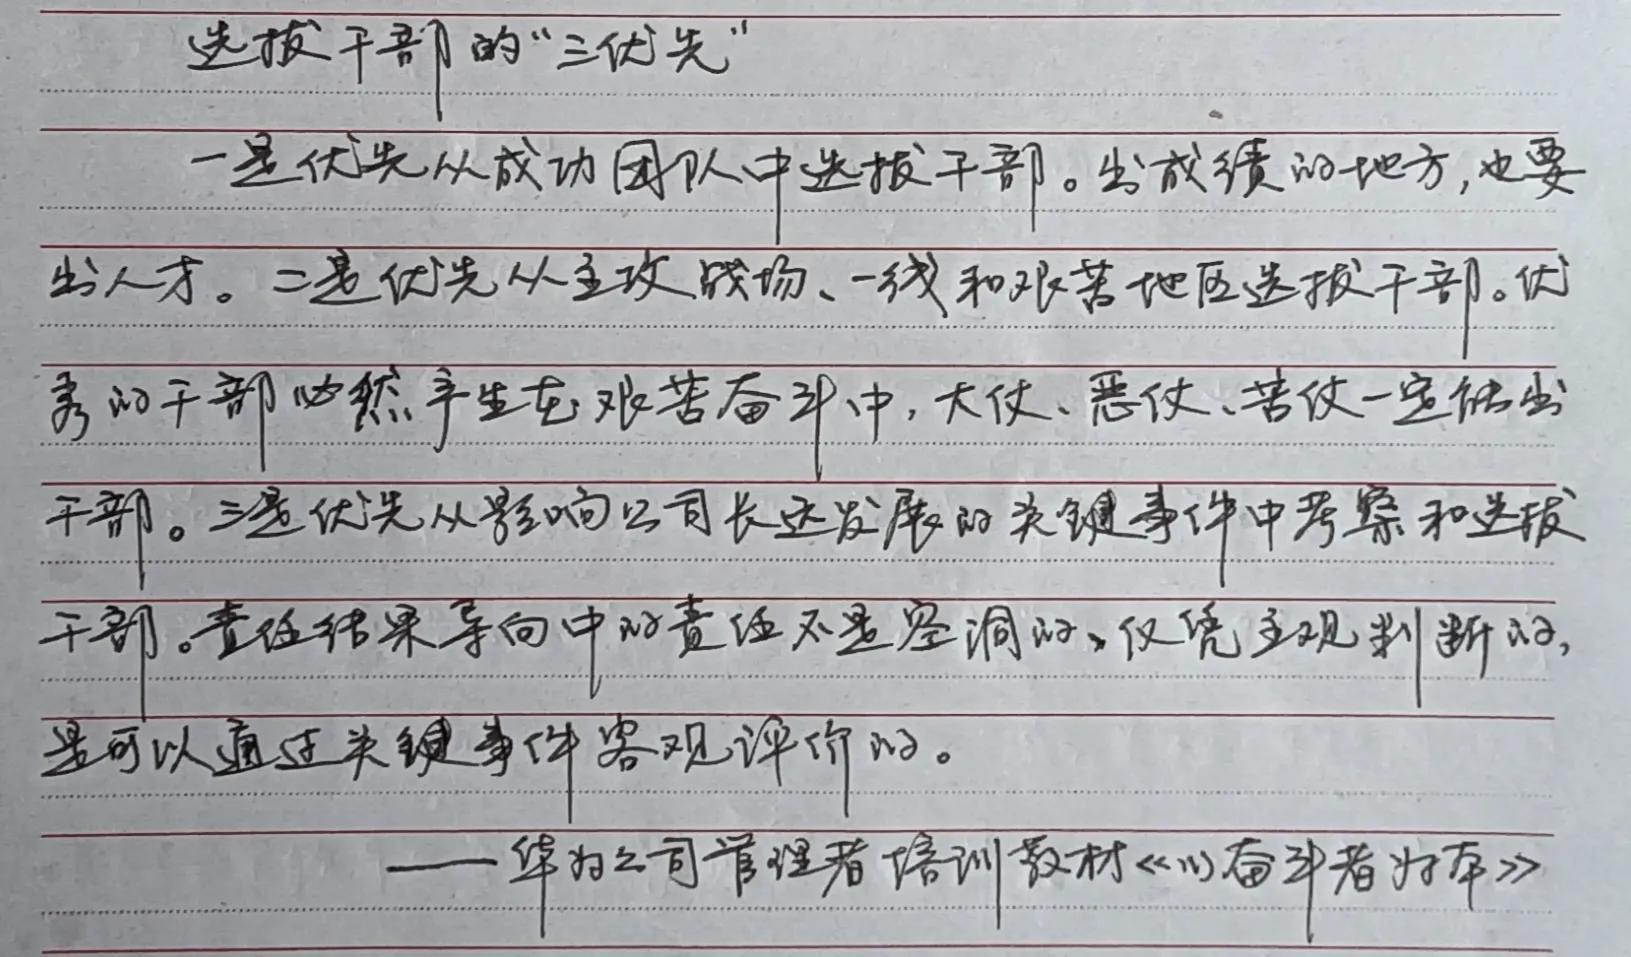 选拔干部的“三优先”
一是优先从成功团队中选拔干部。出成绩的地方,也要
出人才。二是优先从主攻战场、一线和艰苦地区选拔干部。优
秀的干部必然产生在艰苦奋斗中,大仗、恶仗、苦仗一定能出
干部。三是优先从影响公司长远发展的关键事件中考察和选拔
干部。责任结果导向中的责任不是空洞的、仅凭主观判断的,
是可以通过关键事件客观评价的。
——华为公司管理者培训教材《以奋斗者为本》